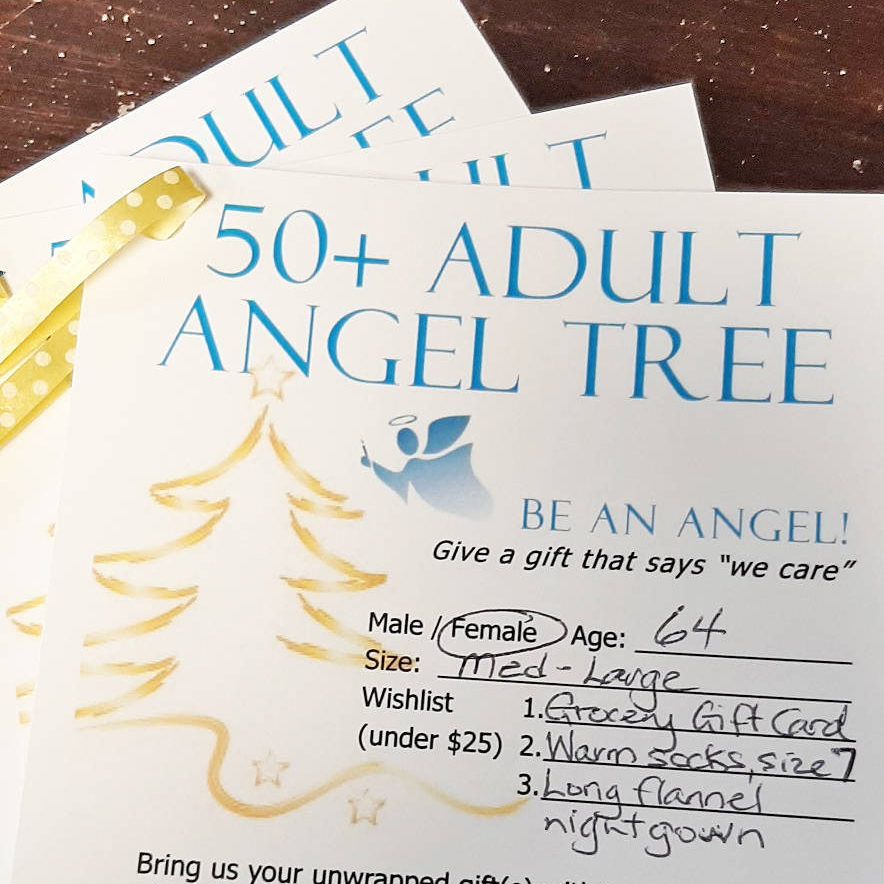 ADULT
EE
ULT
50+ ADULT
ANGEL TREE
BE AN ANGEL!
Give a gift that says "we care"
Male / Female Age: 64
Size: Med - Large
Wishlist 1. Grocery Gift Card
(under $25) 2. Warm socks, size 7
3. Long flannel
nightgown
Bring us your unwrapped gift(s)